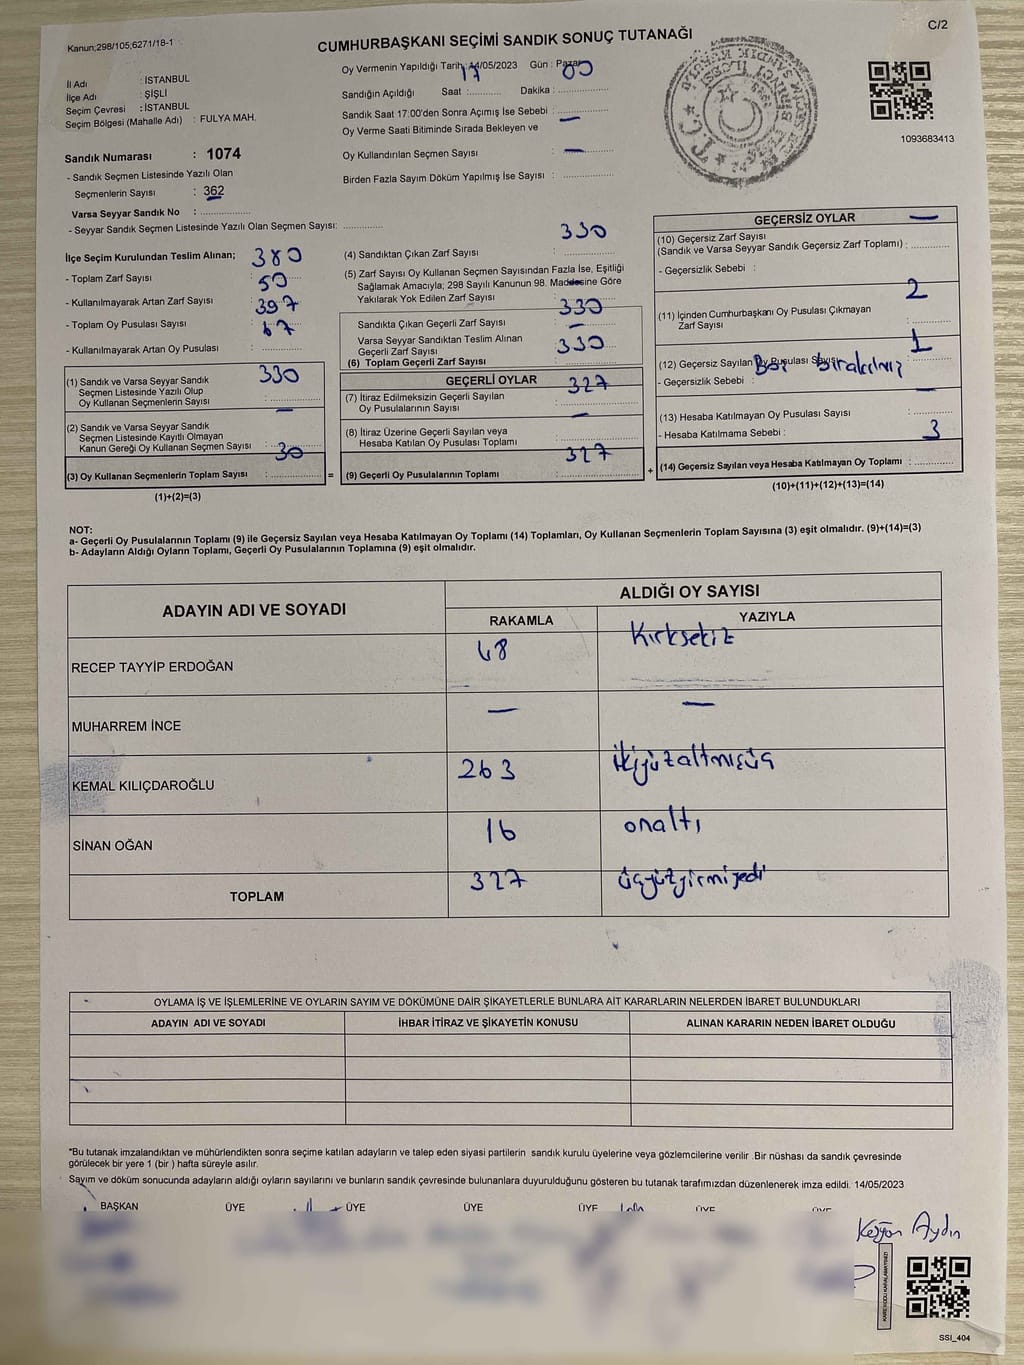 Kanun;298/105;6271/18-1
C/2
CUMHURBAŞKANI SEÇİMİ SANDIK SONUÇ TUTANAĞI
İl Adı : İSTANBUL
İlçe Adı : ŞİŞLİ
Seçim Çevresi : İSTANBUL
Seçim Bölgesi (Mahalle Adı) : FULYA MAH.
Sandık Numarası : 1074
- Sandık Seçmen Listesinde Yazılı Olan
Seçmenlerin Sayısı : 362
Varsa Seyyar Sandık No : ..................
- Seyyar Sandık Seçmen Listesinde Yazılı Olan Seçmen Sayısı: ..................
Oy Vermenin Yapıldığı Tarih: 14/05/2023 Gün : Pazar
Sandığın Açıldığı Saat : 17 Dakika : 00
Sandık Saat 17:00'den Sonra Açımış İse Sebebi : —
Oy Verme Saati Bitiminde Sırada Bekleyen ve
Oy Kullandırılan Seçmen Sayısı : —
Birden Fazla Sayım Döküm Yapılmış İse Sayısı : ..................
1093683413
İlçe Seçim Kurulundan Teslim Alınan; 380
- Toplam Zarf Sayısı : 50
- Kullanılmayarak Artan Zarf Sayısı : 397
- Toplam Oy Pusulası Sayısı : 67
- Kullanılmayarak Artan Oy Pusulası : ..................
(1) Sandık ve Varsa Seyyar Sandık 330
Seçmen Listesinde Yazılı Olup
Oy Kullanan Seçmenlerin Sayısı : ..................
(2) Sandık ve Varsa Seyyar Sandık —
Seçmen Listesinde Kayıtlı Olmayan
Kanun Gereği Oy Kullanan Seçmen Sayısı : 30
(3) Oy Kullanan Seçmenlerin Toplam Sayısı : .................. =
(1)+(2)=(3)
330
(4) Sandıktan Çıkan Zarf Sayısı : ..................
(5) Zarf Sayısı Oy Kullanan Seçmen Sayısından Fazla İse, Eşitliği
Sağlamak Amacıyla; 298 Sayılı Kanunun 98. Maddesine Göre
Yakılarak Yok Edilen Zarf Sayısı : —
330
Sandıkta Çıkan Geçerli Zarf Sayısı : ..................
Varsa Seyyar Sandıktan Teslim Alınan —
Geçerli Zarf Sayısı : 330
(6) Toplam Geçerli Zarf Sayısı : ..................
GEÇERLİ OYLAR
(7) İtiraz Edilmeksizin Geçerli Sayılan 327
Oy Pusulalarının Sayısı : ..................
(8) İtiraz Üzerine Geçerli Sayılan veya
Hesaba Katılan Oy Pusulası Toplamı : ..................
327
(9) Geçerli Oy Pusulalarının Toplamı : .................. +
GEÇERSİZ OYLAR —
(10) Geçersiz Zarf Sayısı
(Sandık ve Varsa Seyyar Sandık Geçersiz Zarf Toplamı) : ..................
- Geçersizlik Sebebi :
2
(11) İçinden Cumhurbaşkanı Oy Pusulası Çıkmayan
Zarf Sayısı : ..................
1
(12) Geçersiz Sayılan Oy Pusulası Sayısı : ..................
- Geçersizlik Sebebi : Boş bırakılmış
—
(13) Hesaba Katılmayan Oy Pusulası Sayısı : ..................
- Hesaba Katılmama Sebebi : 3
(14) Geçersiz Sayılan veya Hesaba Katılmayan Oy Toplamı : ..................
(10)+(11)+(12)+(13)=(14)
NOT:
a- Geçerli Oy Pusulalarının Toplamı (9) ile Geçersiz Sayılan veya Hesaba Katılmayan Oy Toplamı (14) Toplamları, Oy Kullanan Seçmenlerin Toplam Sayısına (3) eşit olmalıdır. (9)+(14)=(3)
b- Adayların Aldığı Oyların Toplamı, Geçerli Oy Pusulalarının Toplamına (9) eşit olmalıdır.
ADAYIN ADI VE SOYADI ALDIĞI OY SAYISI
RAKAMLA YAZIYLA
RECEP TAYYİP ERDOĞAN 48 Kırksekiz
MUHARREM İNCE — —
KEMAL KILIÇDAROĞLU 263 ikiyüzaltmışüç
SİNAN OĞAN 16 onaltı
TOPLAM 327 üçyüzyirmiyedi
OYLAMA İŞ VE İŞLEMLERİNE VE OYLARIN SAYIM VE DÖKÜMÜNE DAİR ŞİKAYETLERLE BUNLARA AİT KARARLARIN NELERDEN İBARET BULUNDUKLARI
ADAYIN ADI VE SOYADI İHBAR İTİRAZ VE ŞİKAYETİN KONUSU ALINAN KARARIN NEDEN İBARET OLDUĞU
"Bu tutanak imzalandıktan ve mühürlendikten sonra seçime katılan adayların ve talep eden siyasi partilerin sandık kurulu üyelerine veya gözlemcilerine verilir .Bir nüshası da sandık çevresinde
görülecek bir yere 1 (bir ) hafta süreyle asılır.
Sayım ve döküm sonucunda adayların aldığı oyların sayılarını ve bunların sandık çevresinde bulunanlara duyurulduğunu gösteren bu tutanak tarafımızdan düzenlenerek imza edildi. 14/05/2023
BAŞKAN ÜYE ÜYE ÜYE ÜYE ÜYE ÜYE
Aydın
KAREKODU KARALAMAYINIZ!
SSİ_404